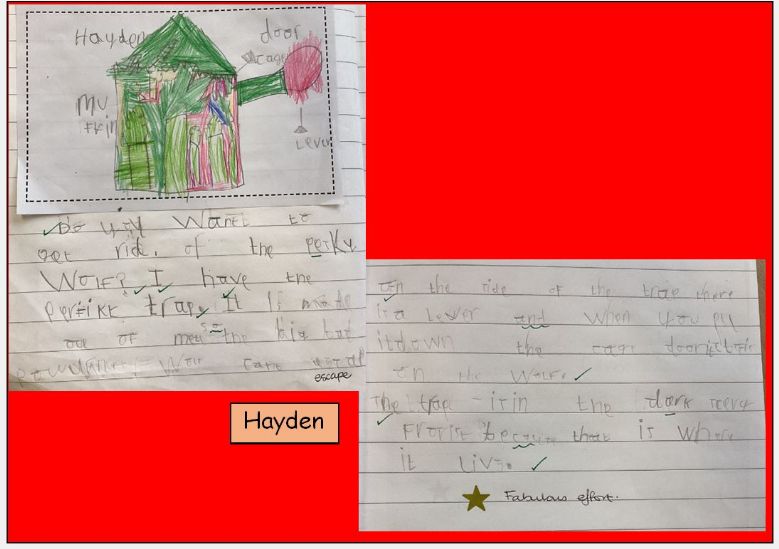 Hayden
door
cage
my
Lever
Do you Want to
get ride. of the perky
Wolf? I have the
perfikt trap, It is made
out of the big bad
Wolf cant
escape
Hayden
on the side of the trap there
is a Lever and when you pll
it down the cage door
on the wolf.
The trap is in the dark
because that is where
it Live.
Fabulous effort.